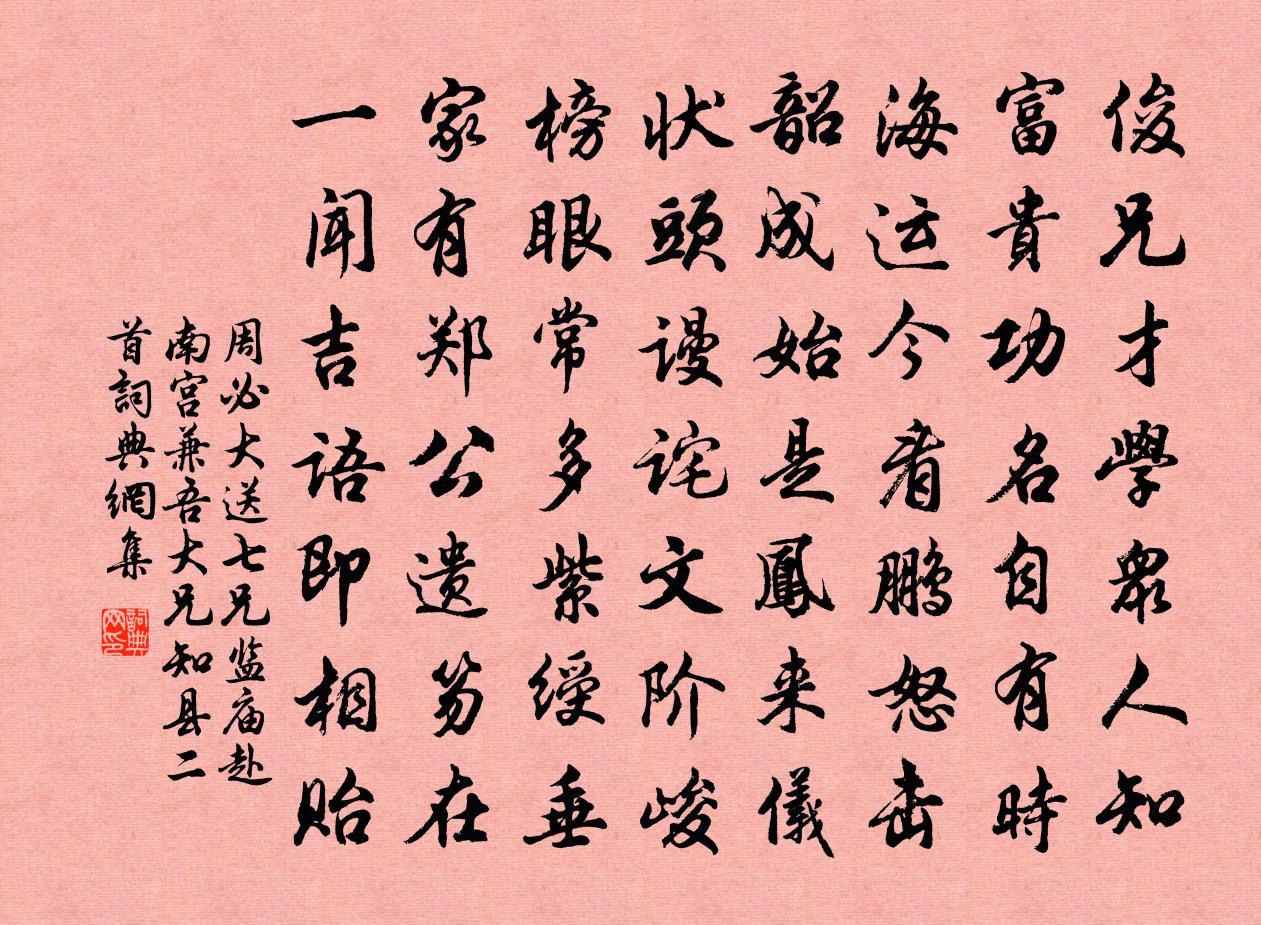 俊兄才學眾人知
富貴功名自有時
海运今看鹏怒击
韶成始是鳳来儀
状頭谩诧文阶峻
榜眼常多紫绶垂
家有郑公遗笏在
一闻吉语即相贻
周必大送七兄监庙赴
南宫兼吾大兄知县二
首詞典網集
詞典网印